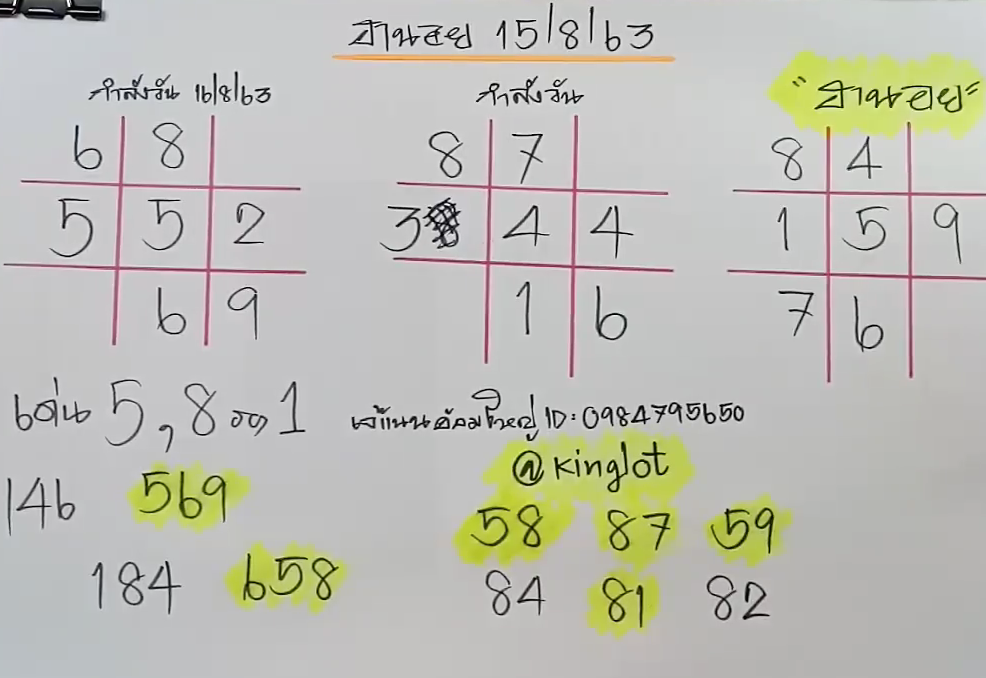 ฮานอย 15/8/63
กำลังวัน 16/8/63
6 8
5 5 2
6 9
กำลังวัน
8 7
3 4 4
1 6
"ฮานอย"
8 4
1 5 9
7 6
เด่น 5,8 รอง 1
146 569
184 658
ID: 0984795650
@kinglot
58 87 59
84 81 82